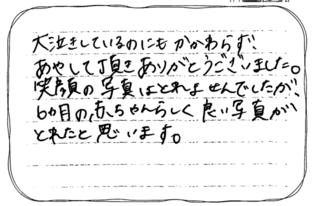 大泣きしているのにもかかわらず、
あやして頂きありがとうございました。
笑顔の写真はとれませんでしたが、
6ヵ月の赤ちゃんらしく良い写真が
とれたと思います。